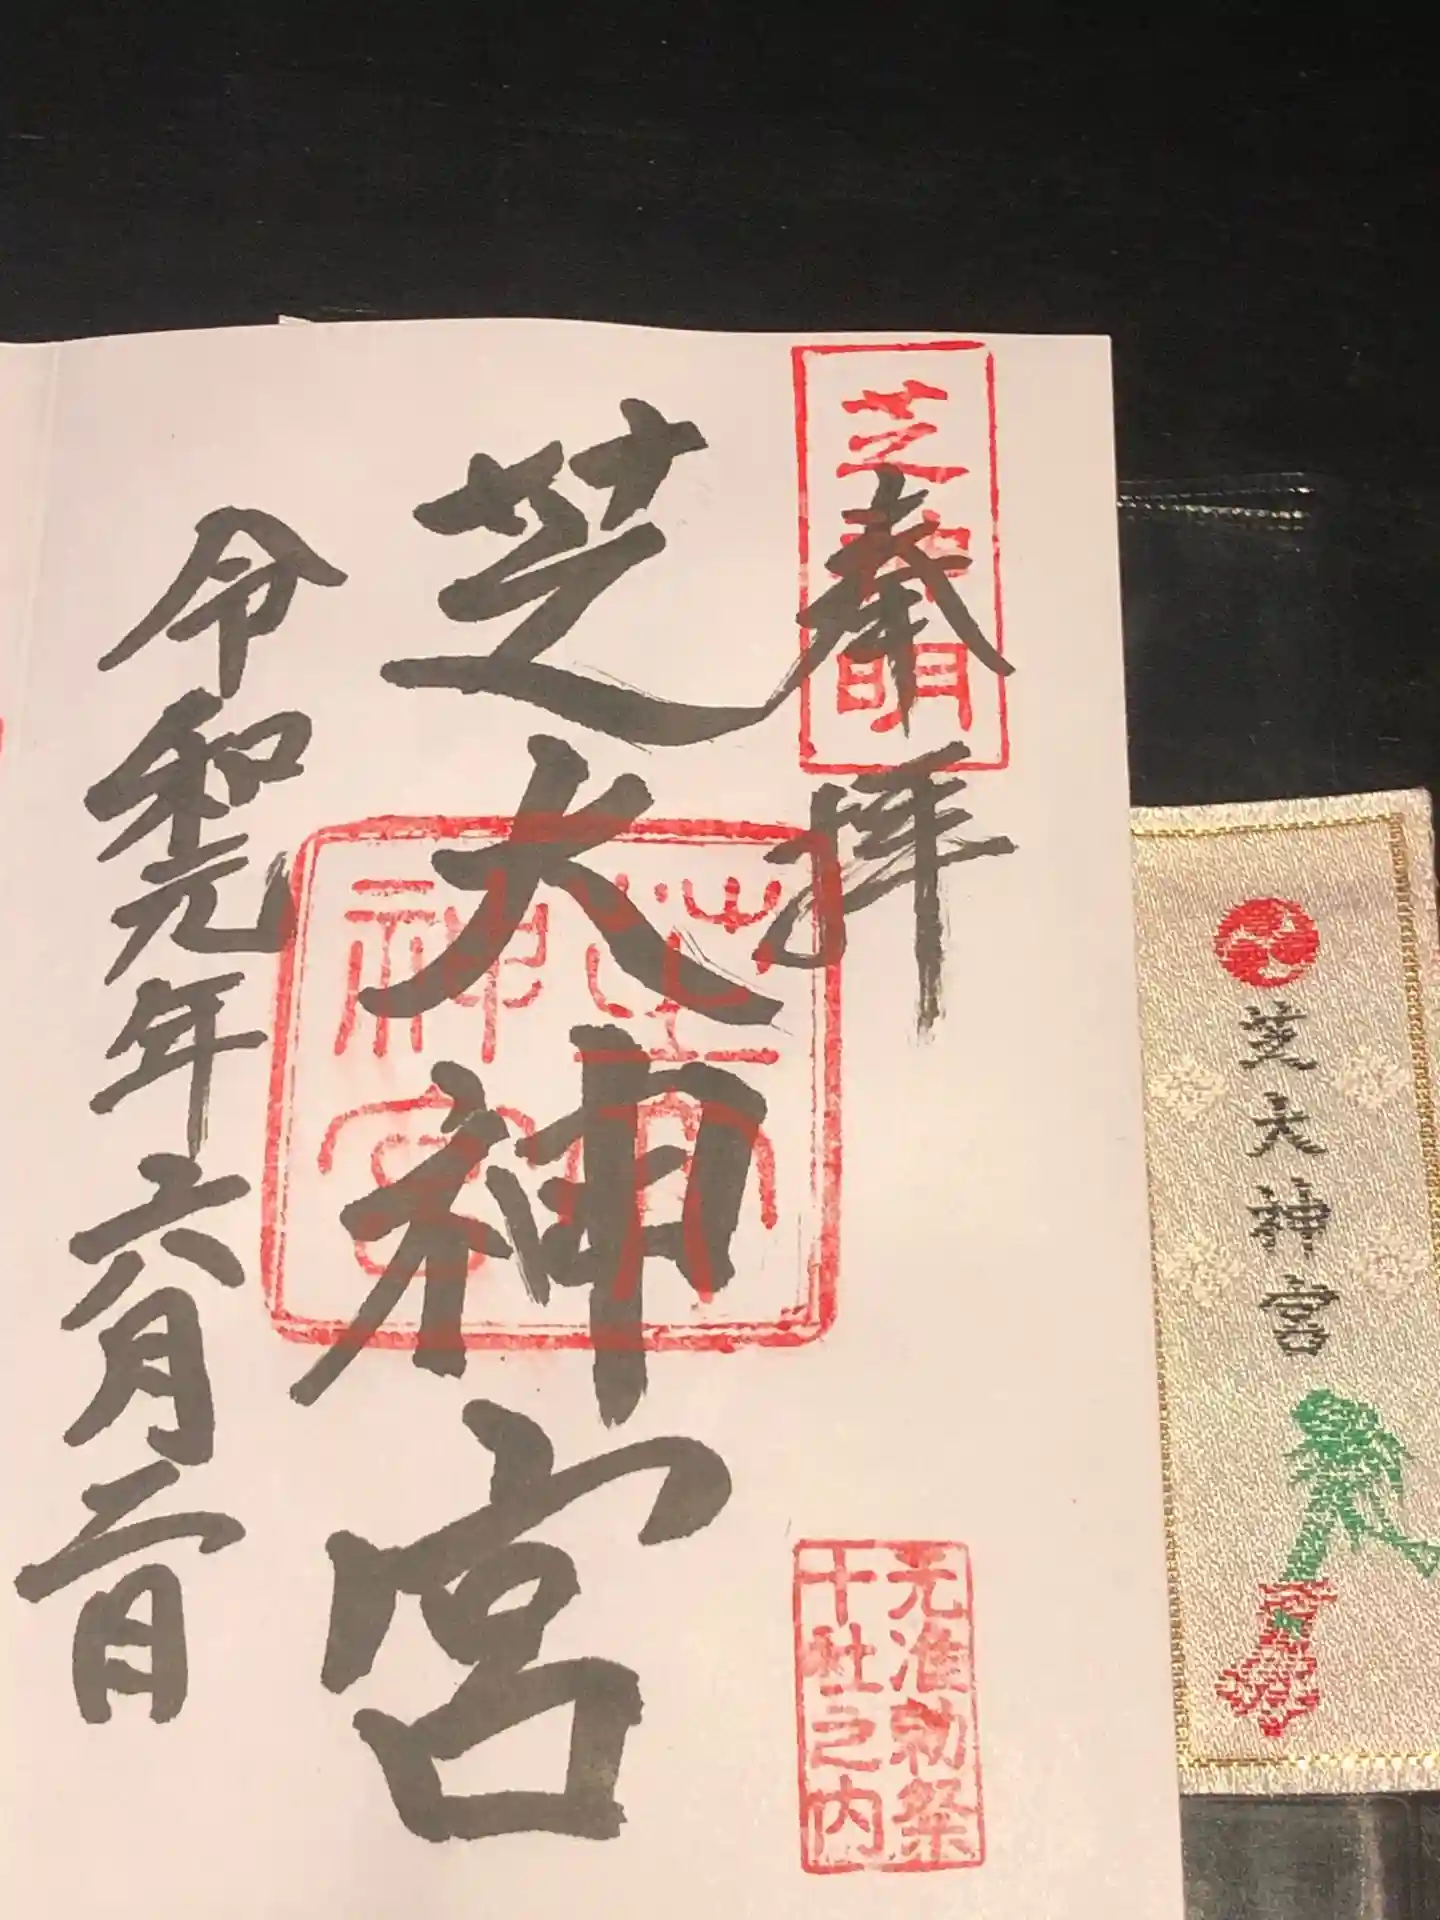 芝神明
奉拝
元准勅祭
十社之内
芝大神宮
芝大神宮
令和元年六月二日
芝大神宮